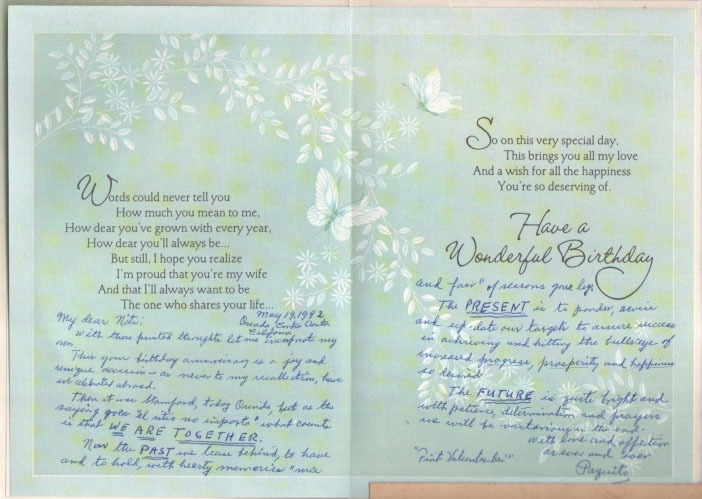 Words could never tell you
How much you mean to me,
How dear you've grown with every year,
How dear you'll always be...
But still, I hope you realize
I'm proud that you're my wife
And that I'll always want to be
The one who shares your life...
May 19, 1992
Orinda, Contra Costa
California
My dear Niti:
With thou printed thoughts let me incorporate my
own.
This your birthday anniversary is a joy and
unique occasion - as never to my recollection, have
we celebrated abroad.
Then it was Stamford, today Orinda, but as the
saying goes "El sitio no importa" what counts
is that WE ARE TOGETHER.
Now the PAST we leave behind, to have
and to hold, with hearty memories "nice
So on this very special day,
This brings you all my love
And a wish for all the happiness
You're so deserving of.
Have a
Wonderful Birthday
and fair" of seasons gone by.
The PRESENT is to ponder, revise
and up date our targets to assure success
in achieving and hitting the bullseye of
increased progress, prosperity and happiness
so desired.
The FUTURE is quite bright and
with patience, determination and prayers
we will be victorious in the end.
With love and affection
as ever and ever
Paquito